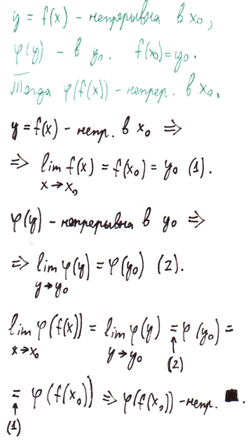 y = f(x) - непрерывна в x₀,
φ(y) - в y₀. f(x₀) = y₀.
Тогда φ(f(x)) - непрер. в x₀.
y = f(x) - непр. в x₀ ⇒
⇒ lim f(x) = f(x₀) = y₀ (1).
x → x₀
φ(y) - непрерывна в y₀ ⇒
⇒ lim φ(y) = φ(y₀) (2).
y → y₀
lim φ(f(x)) = lim φ(y) = φ(y₀) =
x → x₀ y → y₀ (2)
= φ(f(x₀)) ⇒ φ(f(x₀)) - непр. ■.
(1)